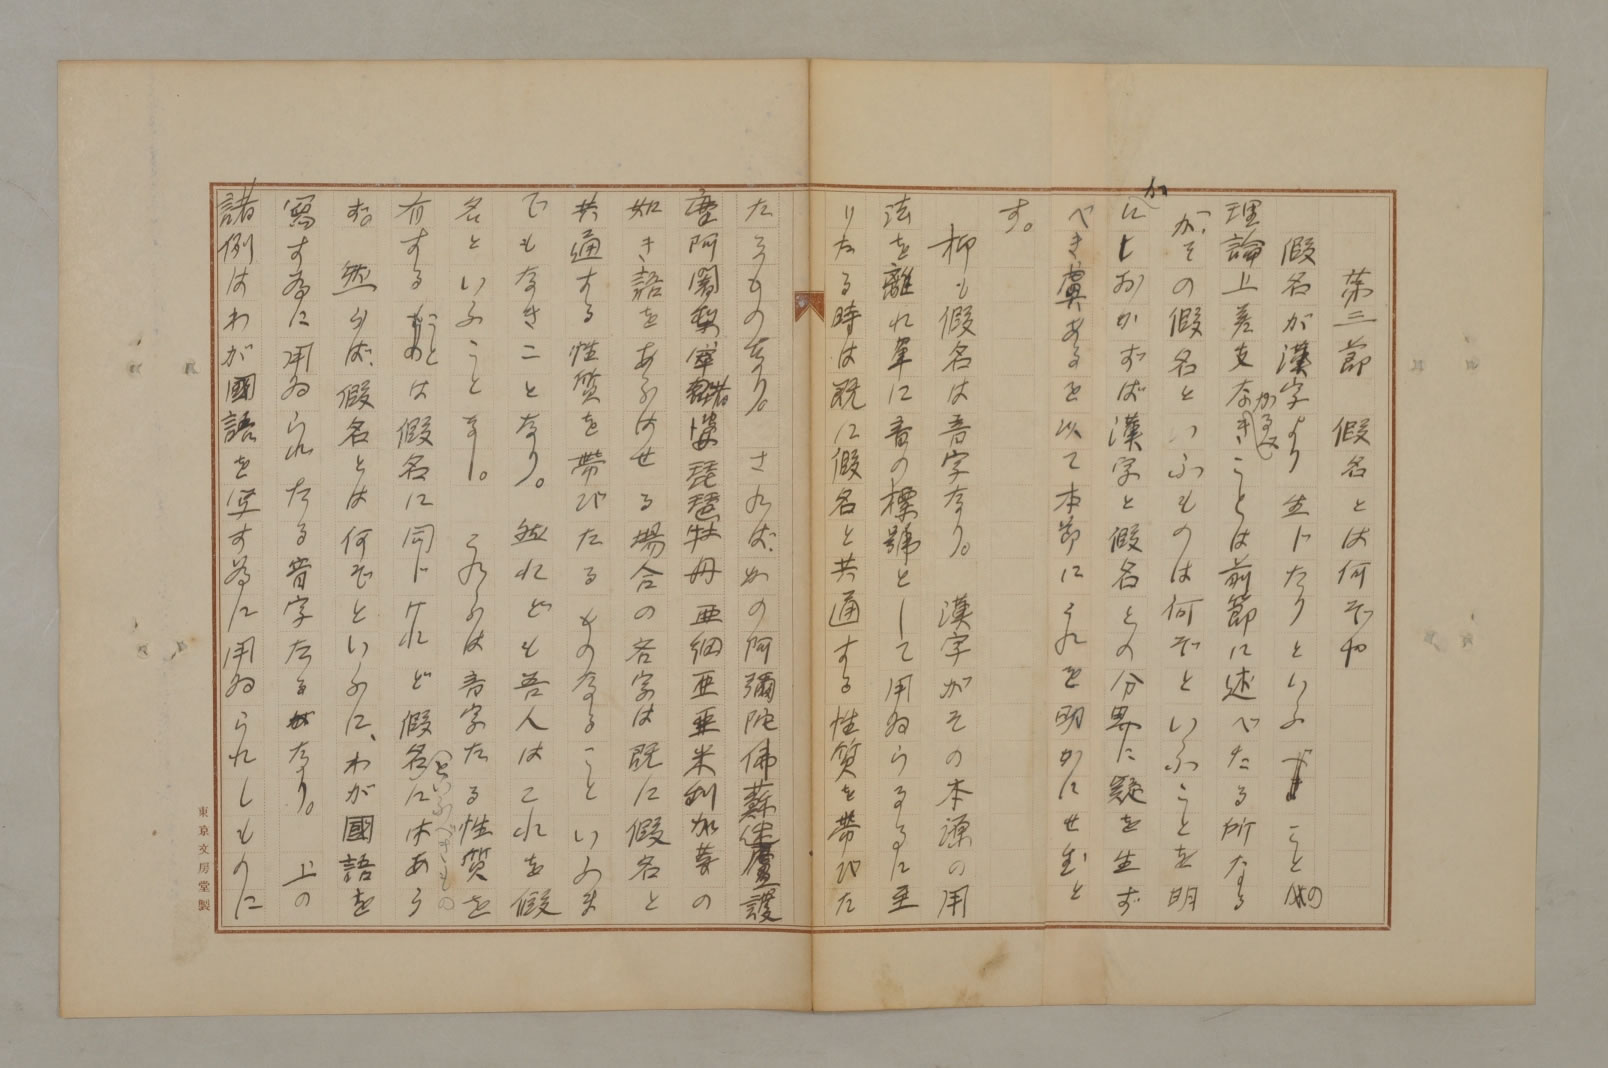 第三節　假名とは何ぞや
假名が漢字より生じたりといふことの
理論上差支なかるべきことは前節に述べたる所なる
が、その假名といふものは何ぞといふことを明
かにしおかずば漢字と假名との分界に疑を生ず
べき虞あるを以て本節にこれを明かにせむと
す。
抑も假名は音字なり。漢字がその本源の用
法を離れ単に音の標號として用ゐらるるに至
りたる時は既に假名と共通する性質を帯びた
たるものなり。されば、かの阿彌陀佛蘇迷盧護
摩阿闍梨窣堵婆琵琶牡丹亜細亜亜米利加等の
如き語をあらはせる場合の各字は既に假名と
共通する性質を帯びたるものなることいふま
でもなきことなり。然れども吾人はこれを假
名といふことなし。これらは音字たる性質を
有することは假名に同じけれど假名(といふべきもの)にはあら
ず。然らば、假名とは何ぞといふに、わが國語を
寫す為に用ゐられたる音字たるなり。上の
諸例はわが國語を寫す為に用ゐられしものに
東京文房堂製